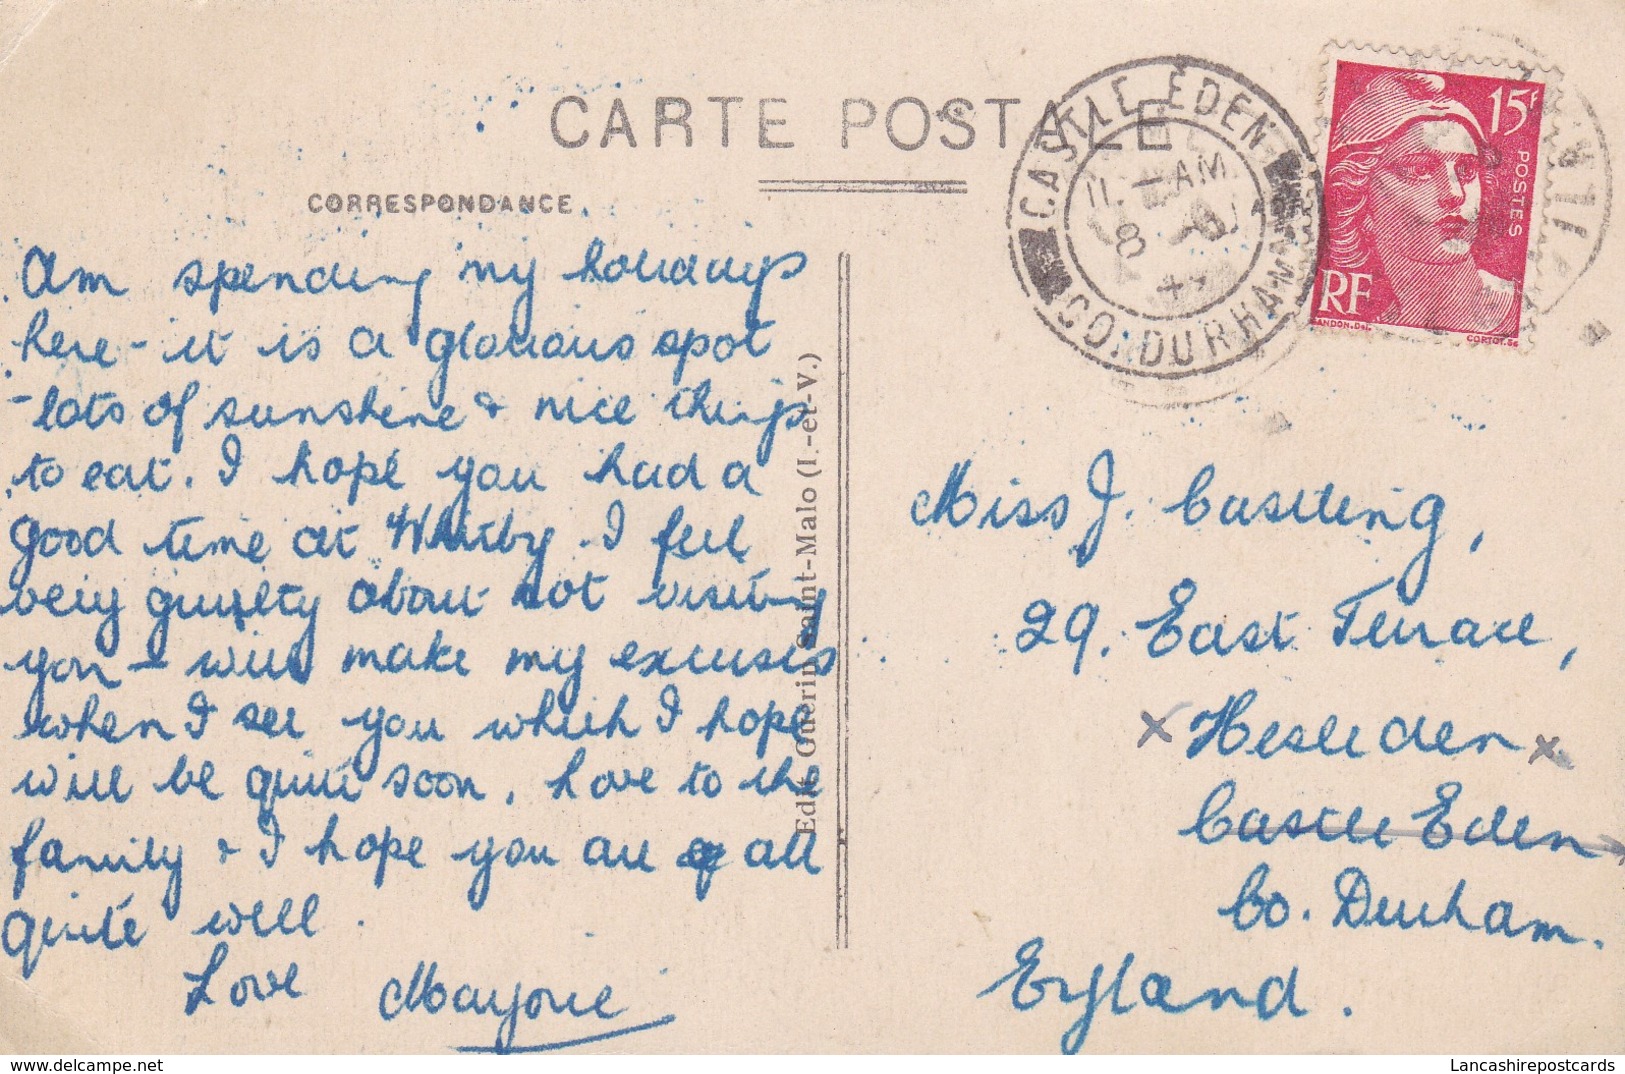 CARTE POSTALE
CORRESPONDANCE
Am spending my holidays
here - it is a glorious spot
- lots of sunshine & nice things
to eat. I hope you had a
good time at Whitby. I feel
very guilty about not visiting
you - will make my excuses
when I see you which I hope
will be quite soon. Love to the
family & I hope you are all
quite well.
Love Marjorie
Edit. Guérin Saint-Malo (I.-et-V.)
CASTLE EDEN
AM
CO. DURHAM
15F
POSTES
RF
GANDON.Del.
CORTOT.Sc
Miss J. Castling,
29. East Terrace,
x Hesleden x
Castle Eden
Co. Durham.
England.
www.delcampe.net
Lancashirepostcards